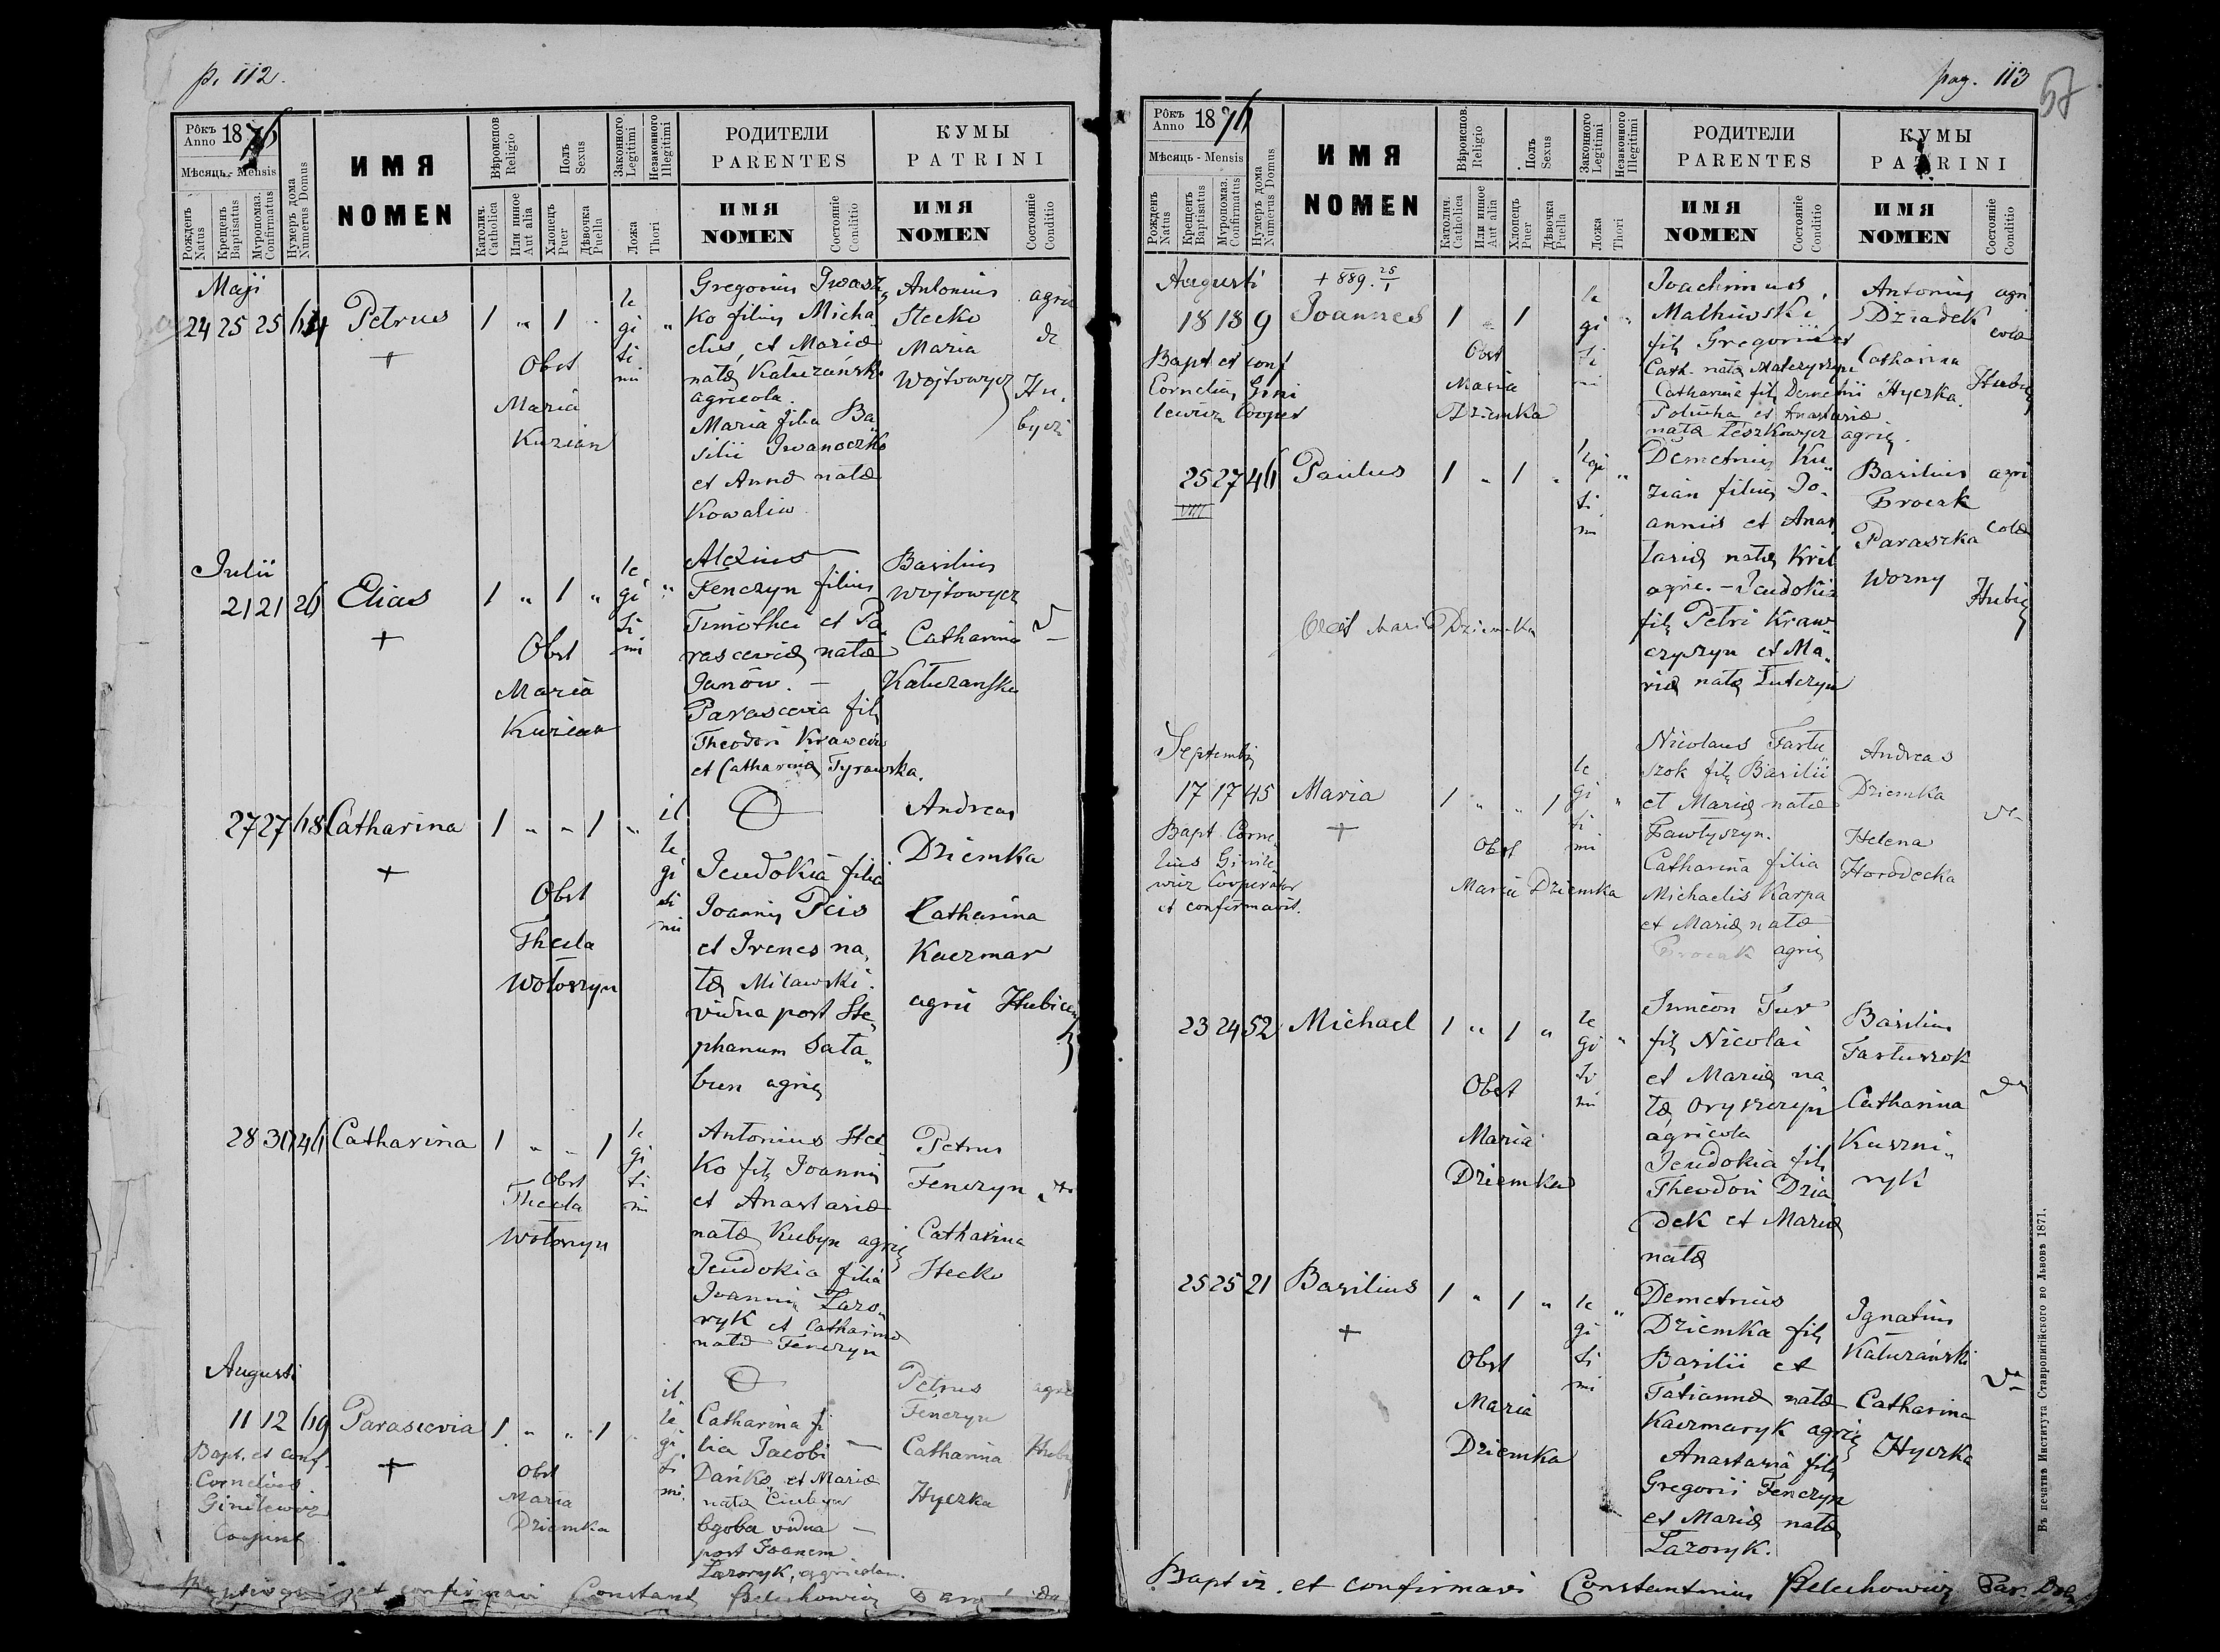 p. 112.
Рôкъ Anno 1876
Мѣсяць - Mensis
Рожденъ Natus
Крещенъ Baptisatus
Мѵропомаз. Confirmatus
Нумеръ дома Numerus Domus
ИМЯ
NOMEN
Вѣроисповѣ Religio
Католич. Catholica
Или инное Aut alia
Полъ Sexus
Хлопецъ Puer
Дѣвочка Puella
Законного Legitimi
Незаконного Illegitimi
Ложа Thori
РОДИТЕЛИ
PARENTES
ИМЯ
NOMEN
Состоянiе Conditio
КУМЫ
PATRINI
ИМЯ
NOMEN
Состоянiе Conditio
Maji
24 25 25 Petrus 1 " 1 "
+
Obst
Maria
Kuzian
le
gi "
ti
mi
Gregorius Iwasz
ko filius Micha
elis, et Mariæ
natæ Kałużański
agricola.
Maria filia Ba
silii Iwanoczko
et Annæ natæ
Kowaliw
Antonius
Stecko
Maria
Wojtowycz
agric
de
Hu
bycz
Julii
21 21 26 Elias 1 " 1 "
+
Obst
Maria
Kuzian
le
gi "
ti
mi
Alexius
Fenczyn filius
Timothei et Pa
rasceviæ natæ
Janów. —
Parascevia fil
Theodori Krawców
et Catharinæ Tyrawska.
Basilius
Wojtowycz
Catharina
Kałużanska
27 27 68 Catharina 1 " " 1 "
+
Obst
Thecla
Wołoszyn
il
le
gi
ti
mi
Jeudokia filia
Joannis Peis
et Irenes na
tæ Milawski.
vidua post Ste
phanum Sała
bun agric
Andreas
Dziemka
Catharina
Kaczmar
agric Hubicze
28 30 46 Catharina 1 " " 1
Obst
Thecla
Wołoszyn
le
gi
ti
mi
Antonius Stec
ko fil Joannis
et Anastasiæ
natæ Kubyn agric
Jeudokia filia
Joannis Łazo
ryk et Catharinæ
natæ Fenczyn
Petrus
Fenczyn
Catharina
Stecko
Augusti
11 12 69 Parascevia 1 " " 1
+
Bapt. et conf.
Cornelius
Ginilewicz
Obst
Maria
Dziemka
il
le
gi
ti
mi
Catharina fi
lia Jacobi —
Dańko, et Mariæ
natæ
vidua —
post Joanem
Łazoryk, agricolam.
Petrus
Fenczyn
Catharina
Hyczka
agric
Hubic
Baptisavi et confirmavi Constant Bełechowicz
pag. 113
57
Рôкъ Anno 1876
Мѣсяць - Mensis
Рожденъ Natus
Крещенъ Baptisatus
Мѵропомаз. Confirmatus
Нумеръ дома Numerus Domus
ИМЯ
NOMEN
Вѣроиспов. Religio
Католич. Catholica
Или инное Aut alia
Полъ Sexus
Хлопецъ Puer
Дѣвочка Puella
Законного Legitimi
Незаконного Illegitimi
Ложа Thori
РОДИТЕЛИ
PARENTES
ИМЯ
NOMEN
Состоянiе Conditio
КУМЫ
PATRINI
ИМЯ
NOMEN
Состоянiе Conditio
Augusti
+ 889. 25/1
18 18 9 Joannes 1 " 1
Bapt et conf
Cornelius Gini
lewicz Cooper
Obst
Maria
Dziemka
le
gi "
ti
mi
Joachimus
Mathiwski
fil Gregorii et
Cath. natæ Matczyszyn
Catharina fil Demetrii
Połucha et Anastasiæ
natæ Łeszkowycz agric.
Antonius
Dziadek
Catharina
Hyczka.
agri
colæ
Hubic
25 27 46 Paulus 1 " 1 "
Obst Maria Dziemka
legi "
ti
mi
Demetrius Ku
zian filius Jo
annis et Anas
tasiæ natæ Kril
agric. — Jeudokia
fil Petri Kraw
czyszyn et Ma
riæ natæ Łutczyn
Basilius
Procak
Paraszka
Worny
agri
colæ
Hubic
Septembris
17 17 45 Maria 1 " " 1
+
Bapt. Corne
lius Ginile
wicz Cooperator
et confirmavit.
Obst
Maria Dziemka
le
gi "
ti
mi
Nicolaus Fartu
szok fil Basilii
et Mariæ natæ
Pawłyszyn.
Catharina filia
Michaelis Karpa
et Mariæ natæ
Procak agric
Andreas
Dziemka
Helena
Horodecka
23 24 52 Michael 1 " 1 "
Obst
Maria
Dziemka
le
gi "
ti
mi
Simeon Tur
fil Nicolai
et Mariæ na
tæ Oryszczyn
agricola
Jeudokia fil
Theodori Dzia
dek et Mariæ
natæ
Basilius
Fartuszok
Catharina
Kuszni
ryk
25 25 21 Basilius 1 " 1 "
+
Obst
Maria
Dziemka
le "
gi
ti
mi
Demetrius
Dziemka fil
Basilii et
Tatiannæ natæ
Kaczmaryk agric
Anastasia fil
Gregorii Fenczyn
et Mariæ natæ
Łazoryk.
Ignatius
Kałużański
Catharina
Hyczka
Baptiz. et confirmavi Constantinus Bełechowicz Par.
Въ печатнѣ Института Ставропигійского во Львовѣ 1871.